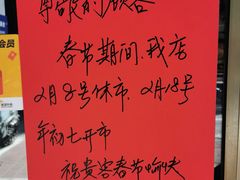 尊敬的顾客
春节期间.我店
2月8号休市.2月18号
年初七开市
祝贵客春节愉快
会员